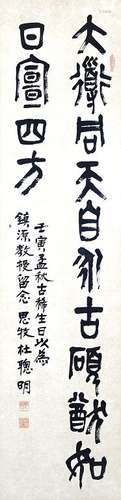 大衟同天自永古碩猷如
日宣四方
壬寅孟秋古稀生日以為
鎮源教授留念 思牧杜聰明